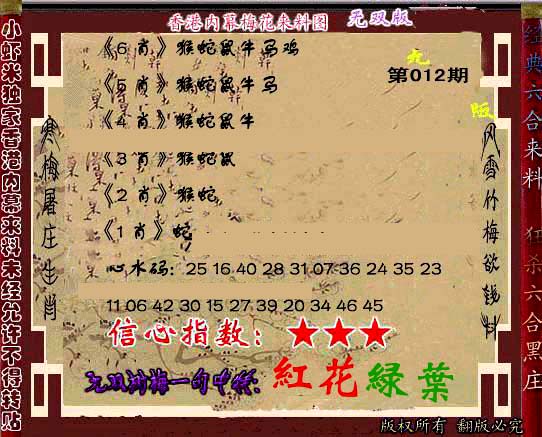 香港内幕梅花来料图 无双版
第012期
《6 肖》猴蛇鼠牛马鸡
《5 肖》猴蛇鼠牛马
《4 肖》猴蛇鼠牛
《3 肖》猴蛇鼠
《2 肖》猴蛇
《1 肖》蛇
心水码：25 16 40 28 31 07 36 24 35 23
11 06 42 30 15 27 39 20 34 46 45
信心指数：★★★
一句中特：紅花緑葉
版权所有 翻版必究
小虾米独家香港内幕来料未经允许不得转贴
寒梅屠庄生肖
风雪竹梅欲钱料
经典六合来料 狂杀六合黑庄